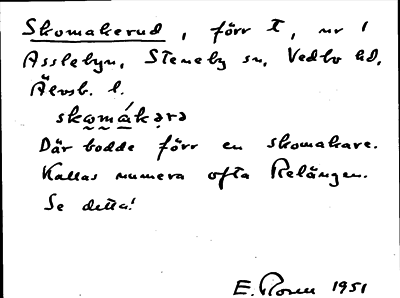 Skomakerud, förr T, nr 1
Asslebyn, Steneby sn, Vedbo hd,
Älvsb. l.
skomákərə
Där bodde förr en skomakare.
Kallas numera ofta Relängen.
Se detta!
E. Rosen 1951